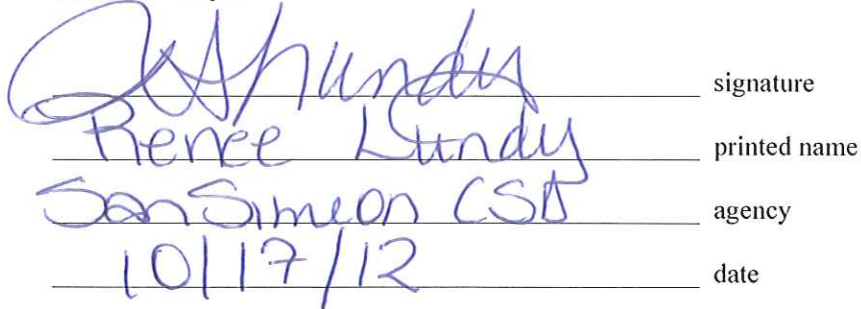 signature
Renee Lundy printed name
San Simeon CSD agency
10/17/12 date